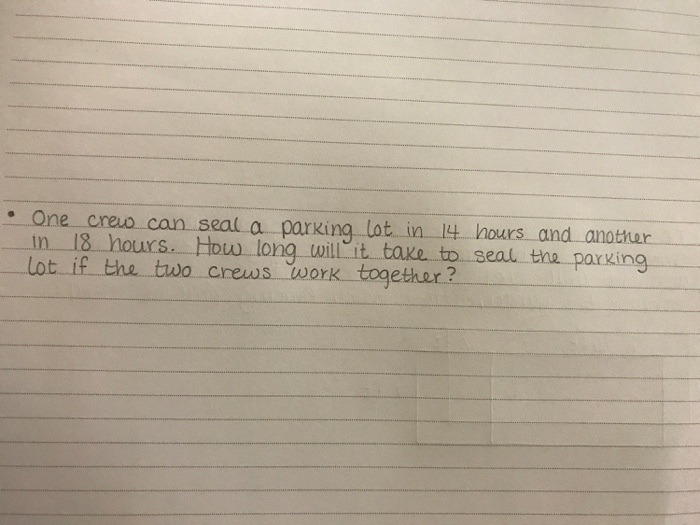 • One crew can seal a parking lot in 14 hours and another
in 18 hours. How long will it take to seal the parking
lot if the two crews work together?